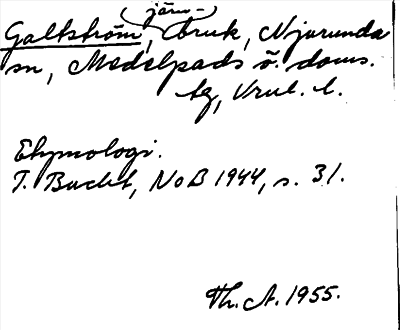 järn-
Galtström, bruk, Njurunda
sn, Medelpads ö. doms.
tg, Vnrl. l.
Etymologi.
T. Bucht, NoB 1944, s. 31.
Th. A. 1955.